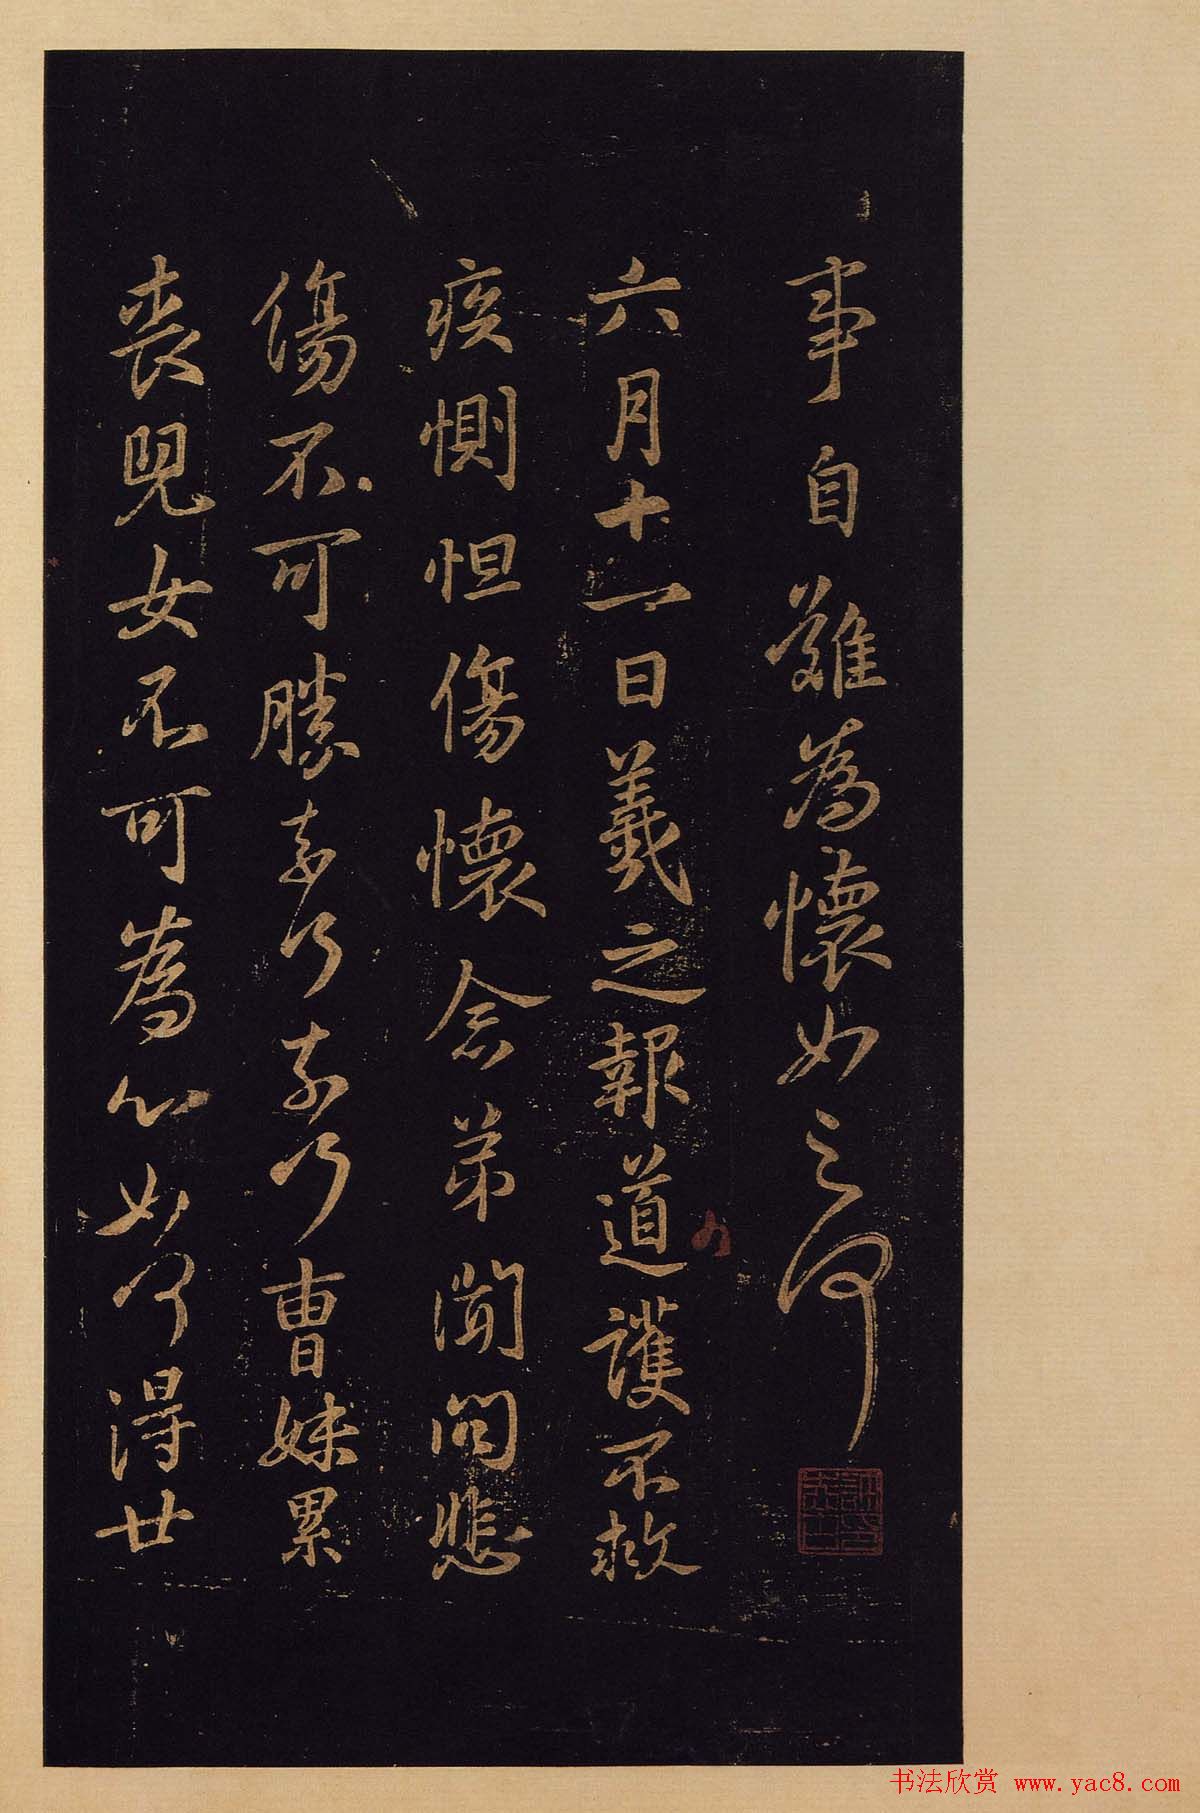 事自難為懷如之何
六月十一日羲之報道護不救
疾惻怛傷懷念弟聞問悲
傷不可勝奈何奈何曹妹累
喪兒女不可為心如何得廿
书法欣赏 www.yac8.com